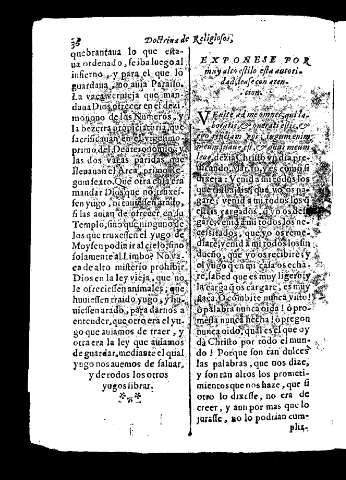 Doctrina de Religiosos,
quebrantaua lo que esta-
ua ordenado, se iba luego al
infierno, y para el que lo
guardaua, no auia Parayso.
La vaca vermeja que man-
daua Dios ofrecer en el dezi
mo nono de los Numeros, y
la bezerra
sacrificauan en el
primo del Deuteronomio, y
las dos vacas paridas, que
lleauan el Arca, primo Re-
gum sexto. Que otra cosa era
mandar Dios que no truxes-
sen yugo, ni
si las auian de ofrecer en su
Templo, sino que ninguno de
los que truxessen el yugo de
Moysen podia ir al cielo, sino
solamente al Limbo? No va-
ca de alto misterio prohibir
Dios en la ley vieja, que no
le ofreciessen animales, que
huuiessen traido yugo, y hu-
uiessen arado, para darnos a
entender, que otro era el yu-
go que auiamos de traer, y
otra era la ley que auiamos
de guardar, mediante el qual
yugo nos auemos de saluar,
y de rodos los otros
yugos librar.
EXPONESE POR
muy alto estilo esta autori-
dad, lease con aten-
cion.
VEnite ad me omnes, qui la-
boratis, & onerati estis, &
ego reficiam vos: iugum enim
meum suaue est, & onus meum
leue, dezia Christo vn dia pre-
dicando,
venid a mi todos los
que trabajais, que yo os pa-
gare; venid a mi todos los q
estais cargados, q yo os des-
venid a mi todos los ne-
cessitados, que yo os reme-
diare; venid a mi todos los sin
dueño, que yo os recibire; y
el yugo que en mi casa os echa-
re, sabed que es muy ligero, y
la carga q os cargare, es muy
flaca. O combite nunca visto!
ò palabra nunca oida! ò pro-
mesa nunca hecha! ò pregon
nunca oido, qual es el que oy
dà Christo por todo el mun-
do! Porque son tan dulces
las palabras, que nos dize,
y son tan altos los prometi-
mientos que nos haze, que si
otro lo dixesse, no era de
creer, y aun por mas que lo
jurasse, no lo podrian cum-
plir.